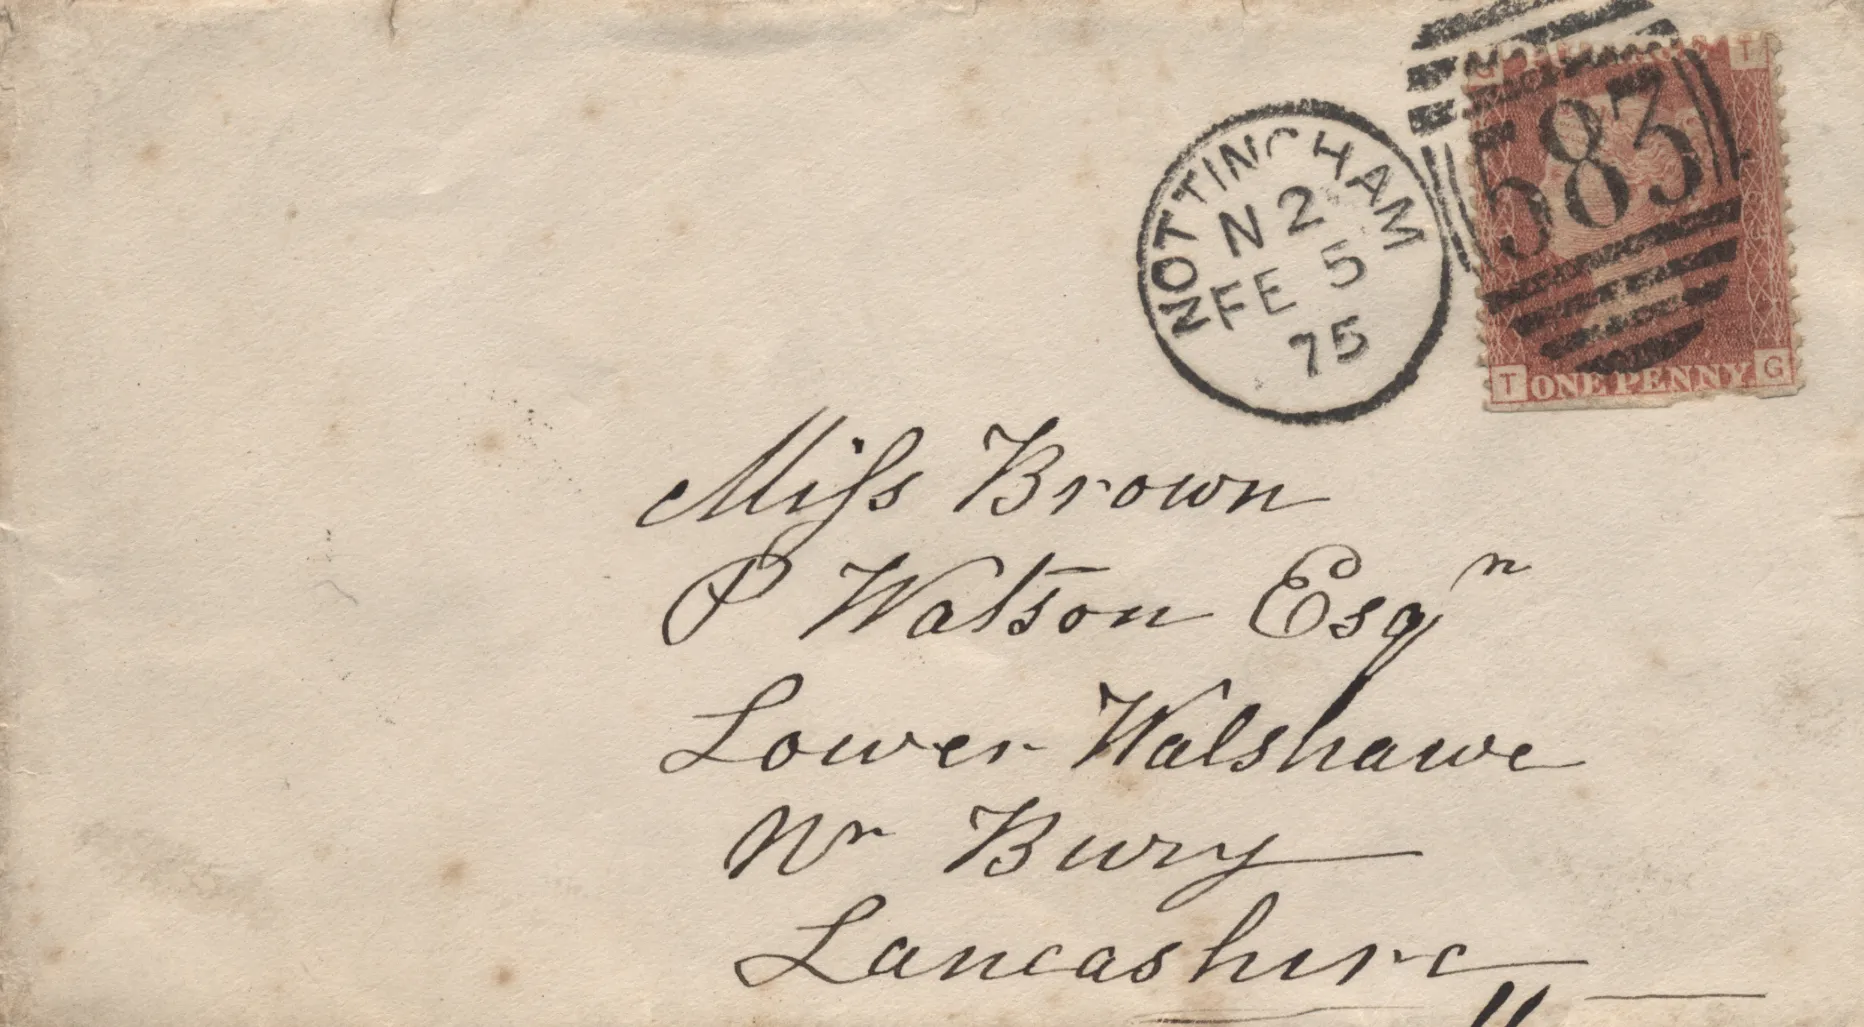 G POSTAGE T
583
NOTTINGHAM
N 2
FE 5
75
T ONE PENNY G
Miſs Brown
P Watson Esqr
Lower Walshawe
Nr Bury
Lancashire